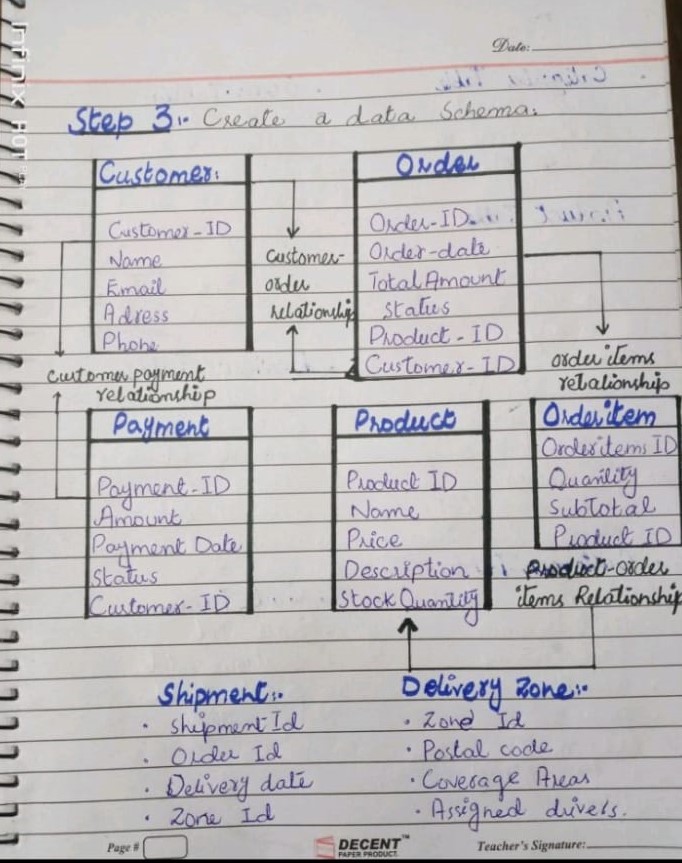 Date:
Step 3:- Create a data Schema:
Customer:
Customer-ID
Name
Email
Adress
Phone
Customer-
order
relationship
Order
Order-ID
Order-date
Total Amount
Status
Product-ID
Customer-ID
order items
relationship
Customer payment
relationship
Payment
Payment-ID
Amount
Payment Date
Status
Customer-ID
Product
Product ID
Name
Price
Description
Stock Quantity
Orderitem
Orderitems ID
Quantity
SubTotal
Product ID
Product-order
items Relationship
Shipment:-
• Shipment Id
• Order Id
• Delivery date
• Zone Id
Delivery Zone:-
• Zone Id
• Postal code
• Coverage Areas
• Assigned drivers.
Page #
DECENT™
PAPER PRODUCT.
Teacher's Signature:
Infinix HOT